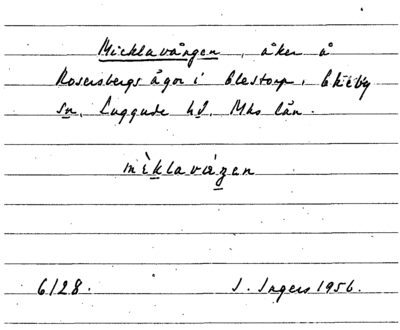 Micklavången, åker å
Rosersbergs ägor i Clestorp, Ekeby
sn, Luggude hd, Mhs län.
mìklavåŋen
6128. I. Ingers 1956.